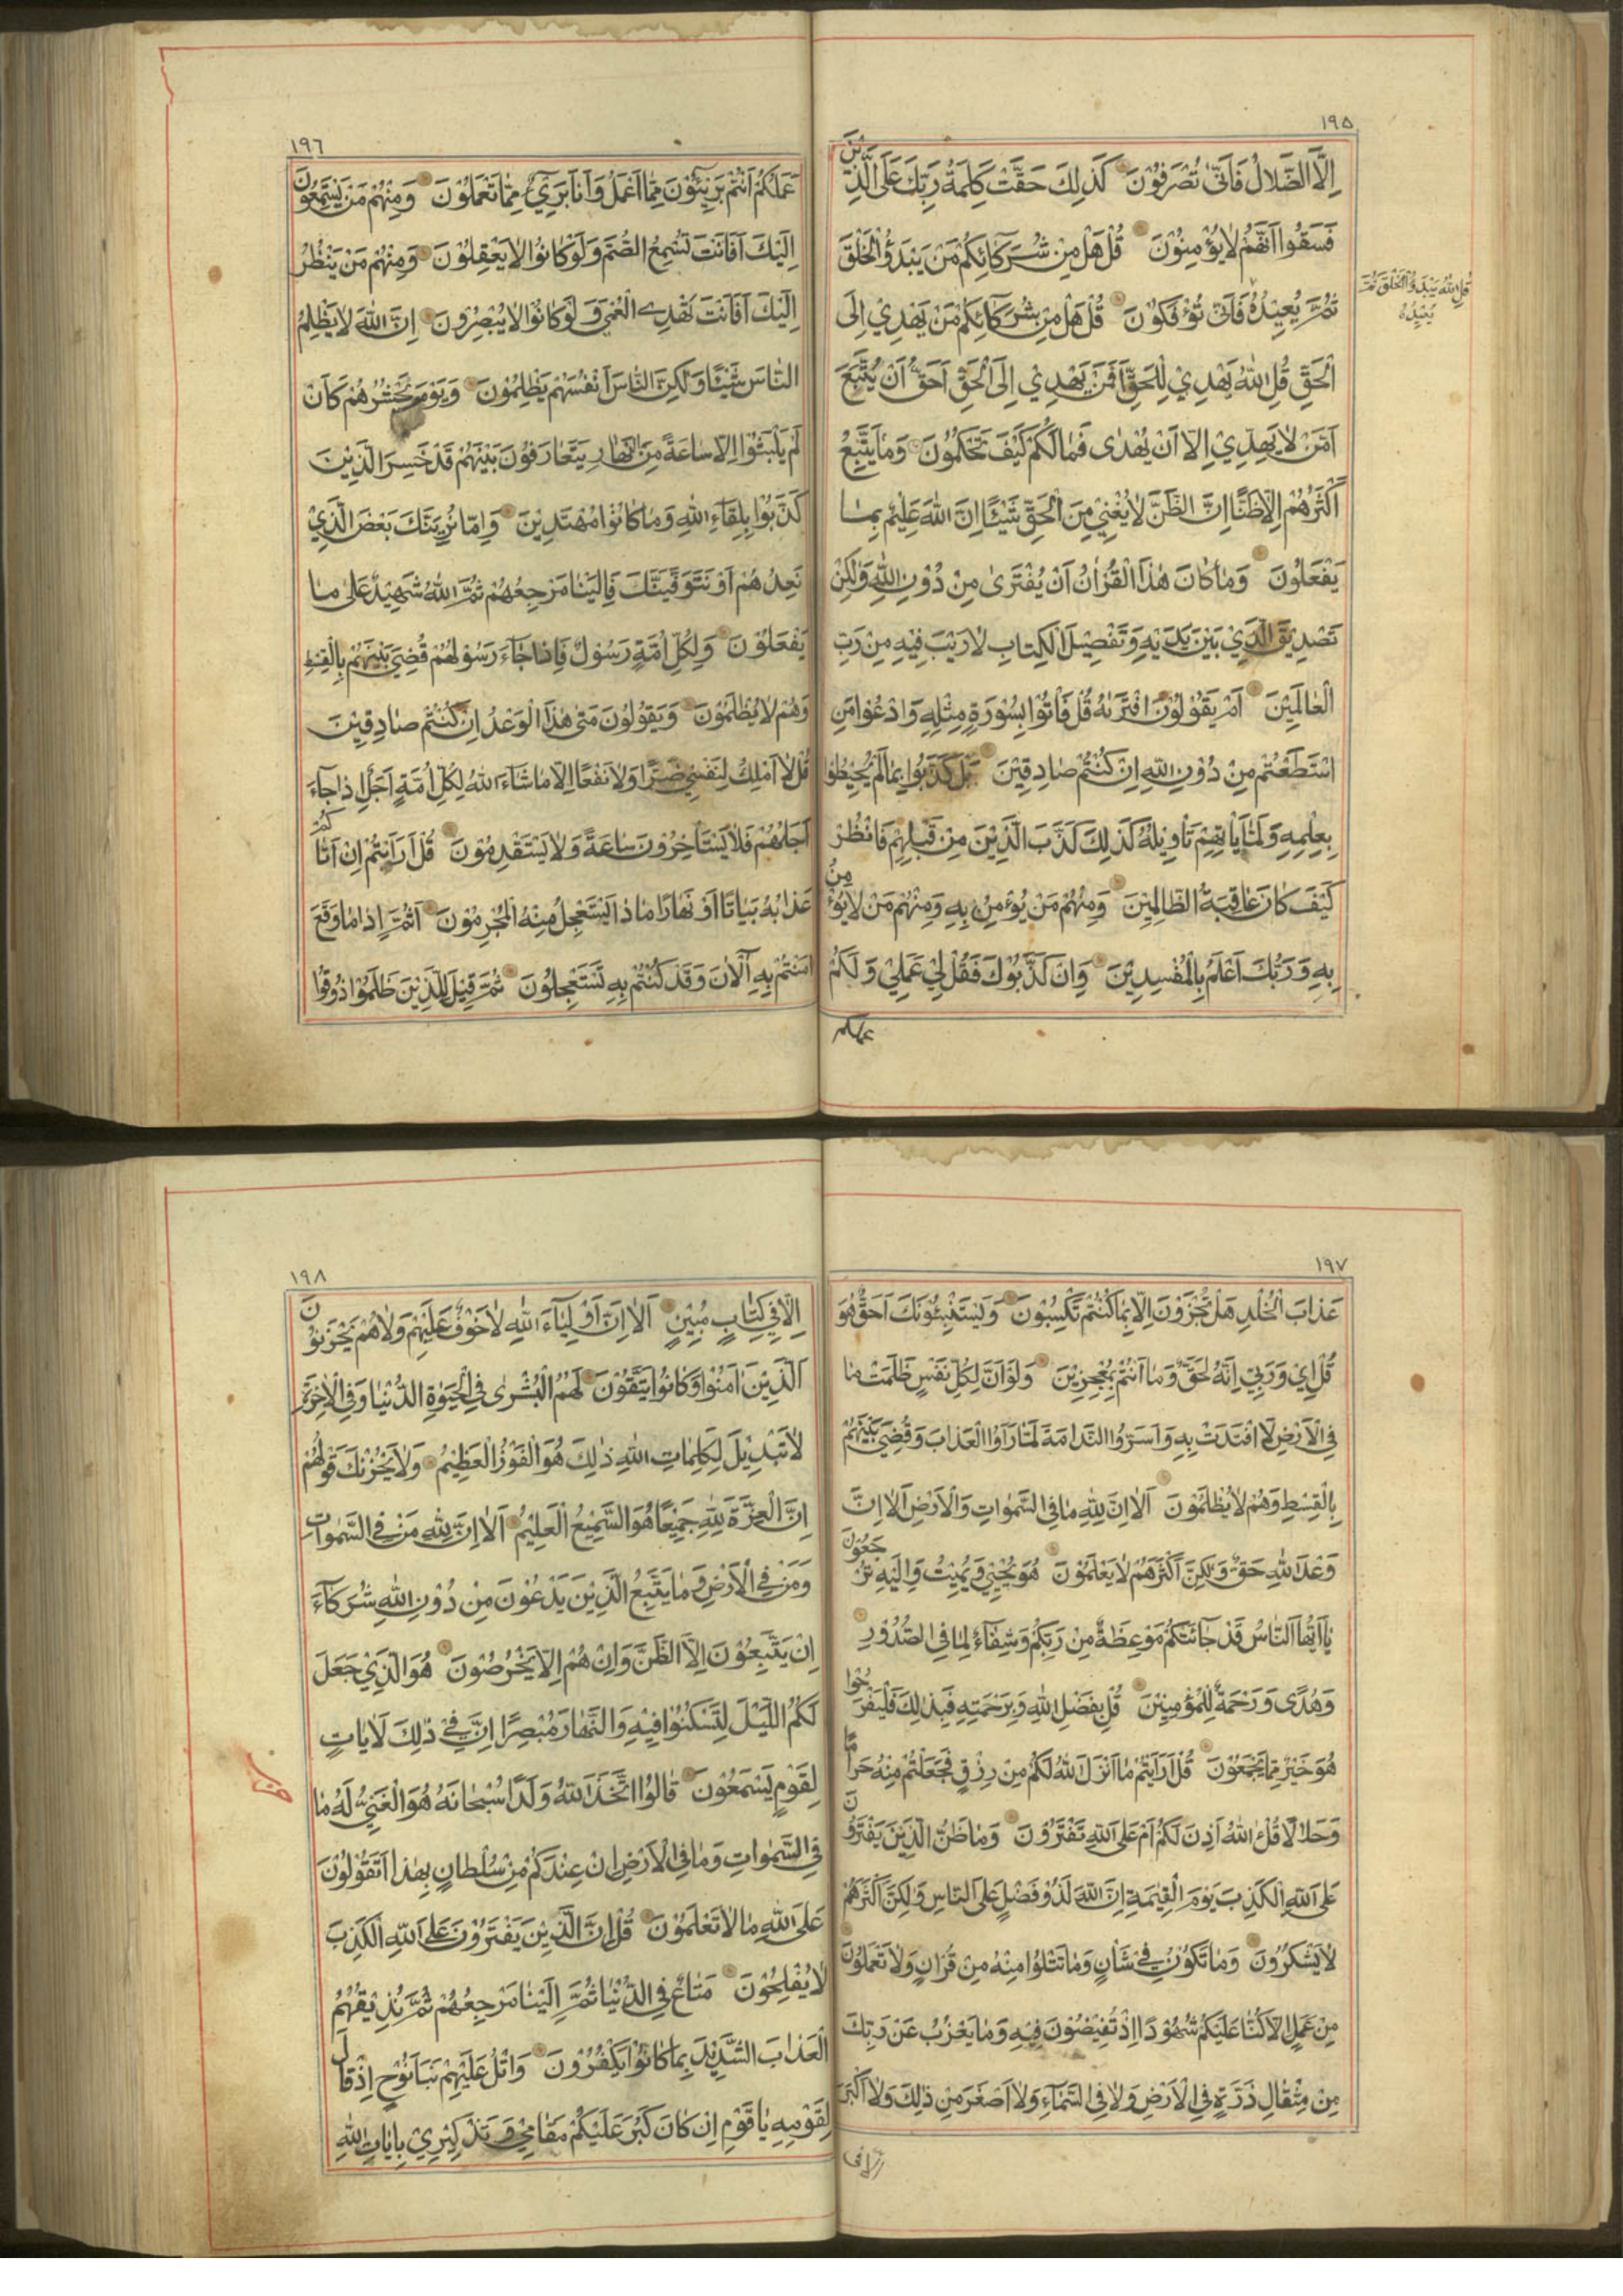 ١٩٥
إِلَّا الضَّلَالُ فَأَنّٰى تُصْرَفُوْنَ كَذٰلِكَ حَقَّتْ كَلِمَةُ رَبِّكَ عَلَى الَّذِيْنَ
فَسَقُوا أَنَّهُمْ لَا يُؤْمِنُوْنَ قُلْ هَلْ مِنْ شُرَكَآئِكُمْ مَنْ يَبْدَؤُ الْخَلْقَ
قُلِ اللّٰهُ يَبْدَؤُ الْخَلْقَ ثُمَّ
يُعِيْدُهُ
ثُمَّ يُعِيْدُهُ فَأَنّٰى تُؤْفَكُوْنَ قُلْ هَلْ مِنْ شُرَكَآئِكُمْ مَنْ يَهْدِيْ إِلَى
الْحَقِّ قُلِ اللّٰهُ يَهْدِيْ لِلْحَقِّ أَفَمَنْ يَهْدِيْ إِلَى الْحَقِّ أَحَقُّ أَنْ يُتَّبَعَ
أَمَّنْ لَا يَهِدِّيْ إِلَّا أَنْ يُهْدٰى فَمَا لَكُمْ كَيْفَ تَحْكُمُوْنَ وَمَا يَتَّبِعُ
أَكْثَرُهُمْ إِلَّا ظَنًّا إِنَّ الظَّنَّ لَا يُغْنِيْ مِنَ الْحَقِّ شَيْئًا إِنَّ اللّٰهَ عَلِيْمٌ بِمَا
يَفْعَلُوْنَ وَمَا كَانَ هٰذَا الْقُرْاٰنُ أَنْ يُفْتَرٰى مِنْ دُوْنِ اللّٰهِ وَلٰكِنْ
تَصْدِيْقَ الَّذِيْ بَيْنَ يَدَيْهِ وَتَفْصِيْلَ الْكِتَابِ لَا رَيْبَ فِيْهِ مِنْ رَبِّ
الْعَالَمِيْنَ أَمْ يَقُوْلُوْنَ افْتَرٰىهُ قُلْ فَأْتُوْا بِسُوْرَةٍ مِثْلِهِ وَادْعُوْا مَنِ
اسْتَطَعْتُمْ مِنْ دُوْنِ اللّٰهِ إِنْ كُنْتُمْ صَادِقِيْنَ بَلْ كَذَّبُوْا بِمَا لَمْ يُحِيْطُوْا
بِعِلْمِهِ وَلَمَّا يَأْتِهِمْ تَأْوِيْلُهُ كَذٰلِكَ كَذَّبَ الَّذِيْنَ مِنْ قَبْلِهِمْ فَانْظُرْ
كَيْفَ كَانَ عَاقِبَةُ الظَّالِمِيْنَ وَمِنْهُمْ مَنْ يُؤْمِنُ بِهِ وَمِنْهُمْ مَنْ لَا يُؤْمِنُ
بِهِ وَرَبُّكَ أَعْلَمُ بِالْمُفْسِدِيْنَ وَإِنْ كَذَّبُوْكَ فَقُلْ لِيْ عَمَلِيْ وَلَكُمْ
عملكم
١٩٦
عَمَلُكُمْ أَنْتُمْ بَرِيْئُوْنَ مِمَّا أَعْمَلُ وَأَنَا بَرِيْءٌ مِمَّا تَعْمَلُوْنَ وَمِنْهُمْ مَنْ يَسْتَمِعُوْنَ
إِلَيْكَ أَفَأَنْتَ تُسْمِعُ الصُّمَّ وَلَوْ كَانُوْا لَا يَعْقِلُوْنَ وَمِنْهُمْ مَنْ يَنْظُرُ
إِلَيْكَ أَفَأَنْتَ تَهْدِي الْعُمْيَ وَلَوْ كَانُوْا لَا يُبْصِرُوْنَ إِنَّ اللّٰهَ لَا يَظْلِمُ
النَّاسَ شَيْئًا وَلٰكِنَّ النَّاسَ أَنْفُسَهُمْ يَظْلِمُوْنَ وَيَوْمَ نَحْشُرُهُمْ كَأَنْ
لَمْ يَلْبَثُوْا إِلَّا سَاعَةً مِنَ النَّهَارِ يَتَعَارَفُوْنَ بَيْنَهُمْ قَدْ خَسِرَ الَّذِيْنَ
كَذَّبُوْا بِلِقَاءِ اللّٰهِ وَمَا كَانُوْا مُهْتَدِيْنَ وَإِمَّا نُرِيَنَّكَ بَعْضَ الَّذِيْ
نَعِدُهُمْ أَوْ نَتَوَفَّيَنَّكَ فَإِلَيْنَا مَرْجِعُهُمْ ثُمَّ اللّٰهُ شَهِيْدٌ عَلٰى مَا
يَفْعَلُوْنَ وَلِكُلِّ أُمَّةٍ رَسُوْلٌ فَإِذَا جَآءَ رَسُوْلُهُمْ قُضِيَ بَيْنَهُمْ بِالْقِسْطِ
وَهُمْ لَا يُظْلَمُوْنَ وَيَقُوْلُوْنَ مَتٰى هٰذَا الْوَعْدُ إِنْ كُنْتُمْ صَادِقِيْنَ
قُلْ لَا أَمْلِكُ لِنَفْسِيْ ضَرًّا وَلَا نَفْعًا إِلَّا مَا شَآءَ اللّٰهُ لِكُلِّ أُمَّةٍ أَجَلٌ إِذَا جَآءَ
أَجَلُهُمْ فَلَا يَسْتَأْخِرُوْنَ سَاعَةً وَلَا يَسْتَقْدِمُوْنَ قُلْ أَرَأَيْتُمْ إِنْ أَتَاكُمْ
عَذَابُهُ بَيَاتًا أَوْ نَهَارًا مَاذَا يَسْتَعْجِلُ مِنْهُ الْمُجْرِمُوْنَ أَثُمَّ إِذَا مَا وَقَعَ
اٰمَنْتُمْ بِهِ آلْاٰنَ وَقَدْ كُنْتُمْ بِهِ تَسْتَعْجِلُوْنَ ثُمَّ قِيْلَ لِلَّذِيْنَ ظَلَمُوْا ذُوْقُوْا
١٩٧
عَذَابَ الْخُلْدِ هَلْ تُجْزَوْنَ إِلَّا بِمَا كُنْتُمْ تَكْسِبُوْنَ وَيَسْتَنْبِئُوْنَكَ أَحَقٌّ هُوَ
قُلْ إِيْ وَرَبِّيْ إِنَّهُ لَحَقٌّ وَمَا أَنْتُمْ بِمُعْجِزِيْنَ وَلَوْ أَنَّ لِكُلِّ نَفْسٍ ظَلَمَتْ مَا
فِي الْأَرْضِ لَافْتَدَتْ بِهِ وَأَسَرُّوا النَّدَامَةَ لَمَّا رَأَوُا الْعَذَابَ وَقُضِيَ بَيْنَهُمْ
بِالْقِسْطِ وَهُمْ لَا يُظْلَمُوْنَ أَلَا إِنَّ لِلّٰهِ مَا فِي السَّمٰوَاتِ وَالْأَرْضِ أَلَا إِنَّ
وَعْدَ اللّٰهِ حَقٌّ وَلٰكِنَّ أَكْثَرَهُمْ لَا يَعْلَمُوْنَ هُوَ يُحْيِيْ وَيُمِيْتُ وَإِلَيْهِ تُرْجَعُوْنَ
يَا أَيُّهَا النَّاسُ قَدْ جَآئَتْكُمْ مَوْعِظَةٌ مِنْ رَبِّكُمْ وَشِفَآءٌ لِمَا فِي الصُّدُوْرِ
وَهُدًى وَرَحْمَةٌ لِلْمُؤْمِنِيْنَ قُلْ بِفَضْلِ اللّٰهِ وَبِرَحْمَتِهِ فَبِذٰلِكَ فَلْيَفْرَحُوْا
هُوَ خَيْرٌ مِمَّا يَجْمَعُوْنَ قُلْ أَرَأَيْتُمْ مَا أَنْزَلَ اللّٰهُ لَكُمْ مِنْ رِزْقٍ فَجَعَلْتُمْ مِنْهُ حَرَامًا
وَحَلَالًا قُلْ آللّٰهُ أَذِنَ لَكُمْ أَمْ عَلَى اللّٰهِ تَفْتَرُوْنَ وَمَا ظَنُّ الَّذِيْنَ يَفْتَرُوْنَ
عَلَى اللّٰهِ الْكَذِبَ يَوْمَ الْقِيٰمَةِ إِنَّ اللّٰهَ لَذُوْ فَضْلٍ عَلَى النَّاسِ وَلٰكِنَّ أَكْثَرَهُمْ
لَا يَشْكُرُوْنَ وَمَا تَكُوْنُ فِيْ شَأْنٍ وَمَا تَتْلُوْا مِنْهُ مِنْ قُرْاٰنٍ وَلَا تَعْمَلُوْنَ
مِنْ عَمَلٍ إِلَّا كُنَّا عَلَيْكُمْ شُهُوْدًا إِذْ تُفِيْضُوْنَ فِيْهِ وَمَا يَعْزُبُ عَنْ رَبِّكَ
مِنْ مِثْقَالِ ذَرَّةٍ فِي الْأَرْضِ وَلَا فِي السَّمَآءِ وَلَا أَصْغَرَ مِنْ ذٰلِكَ وَلَا أَكْبَرَ
الا فى
١٩٨
إِلَّا فِيْ كِتَابٍ مُبِيْنٍ أَلَا إِنَّ أَوْلِيَآءَ اللّٰهِ لَا خَوْفٌ عَلَيْهِمْ وَلَا هُمْ يَحْزَنُوْنَ
الَّذِيْنَ اٰمَنُوْا وَكَانُوْا يَتَّقُوْنَ لَهُمُ الْبُشْرٰى فِي الْحَيٰوةِ الدُّنْيَا وَفِي الْاٰخِرَةِ
لَا تَبْدِيْلَ لِكَلِمَاتِ اللّٰهِ ذٰلِكَ هُوَ الْفَوْزُ الْعَظِيْمُ وَلَا يَحْزُنْكَ قَوْلُهُمْ
إِنَّ الْعِزَّةَ لِلّٰهِ جَمِيْعًا هُوَ السَّمِيْعُ الْعَلِيْمُ أَلَا إِنَّ لِلّٰهِ مَنْ فِي السَّمٰوَاتِ
وَمَنْ فِي الْأَرْضِ وَمَا يَتَّبِعُ الَّذِيْنَ يَدْعُوْنَ مِنْ دُوْنِ اللّٰهِ شُرَكَآءَ
إِنْ يَتَّبِعُوْنَ إِلَّا الظَّنَّ وَإِنْ هُمْ إِلَّا يَخْرُصُوْنَ هُوَ الَّذِيْ جَعَلَ
لَكُمُ اللَّيْلَ لِتَسْكُنُوْا فِيْهِ وَالنَّهَارَ مُبْصِرًا إِنَّ فِيْ ذٰلِكَ لَاٰيَاتٍ
لِقَوْمٍ يَسْمَعُوْنَ قَالُوا اتَّخَذَ اللّٰهُ وَلَدًا سُبْحَانَهُ هُوَ الْغَنِيُّ لَهُ مَا
فِي السَّمٰوَاتِ وَمَا فِي الْأَرْضِ إِنْ عِنْدَكُمْ مِنْ سُلْطَانٍ بِهٰذَا أَتَقُوْلُوْنَ
عَلَى اللّٰهِ مَا لَا تَعْلَمُوْنَ قُلْ إِنَّ الَّذِيْنَ يَفْتَرُوْنَ عَلَى اللّٰهِ الْكَذِبَ
لَا يُفْلِحُوْنَ مَتَاعٌ فِي الدُّنْيَا ثُمَّ إِلَيْنَا مَرْجِعُهُمْ ثُمَّ نُذِيْقُهُمُ
الْعَذَابَ الشَّدِيْدَ بِمَا كَانُوْا يَكْفُرُوْنَ وَاتْلُ عَلَيْهِمْ نَبَأَ نُوْحٍ إِذْ قَالَ
لِقَوْمِهِ يَا قَوْمِ إِنْ كَانَ كَبُرَ عَلَيْكُمْ مَقَامِيْ وَتَذْكِيْرِيْ بِاٰيَاتِ اللّٰهِ